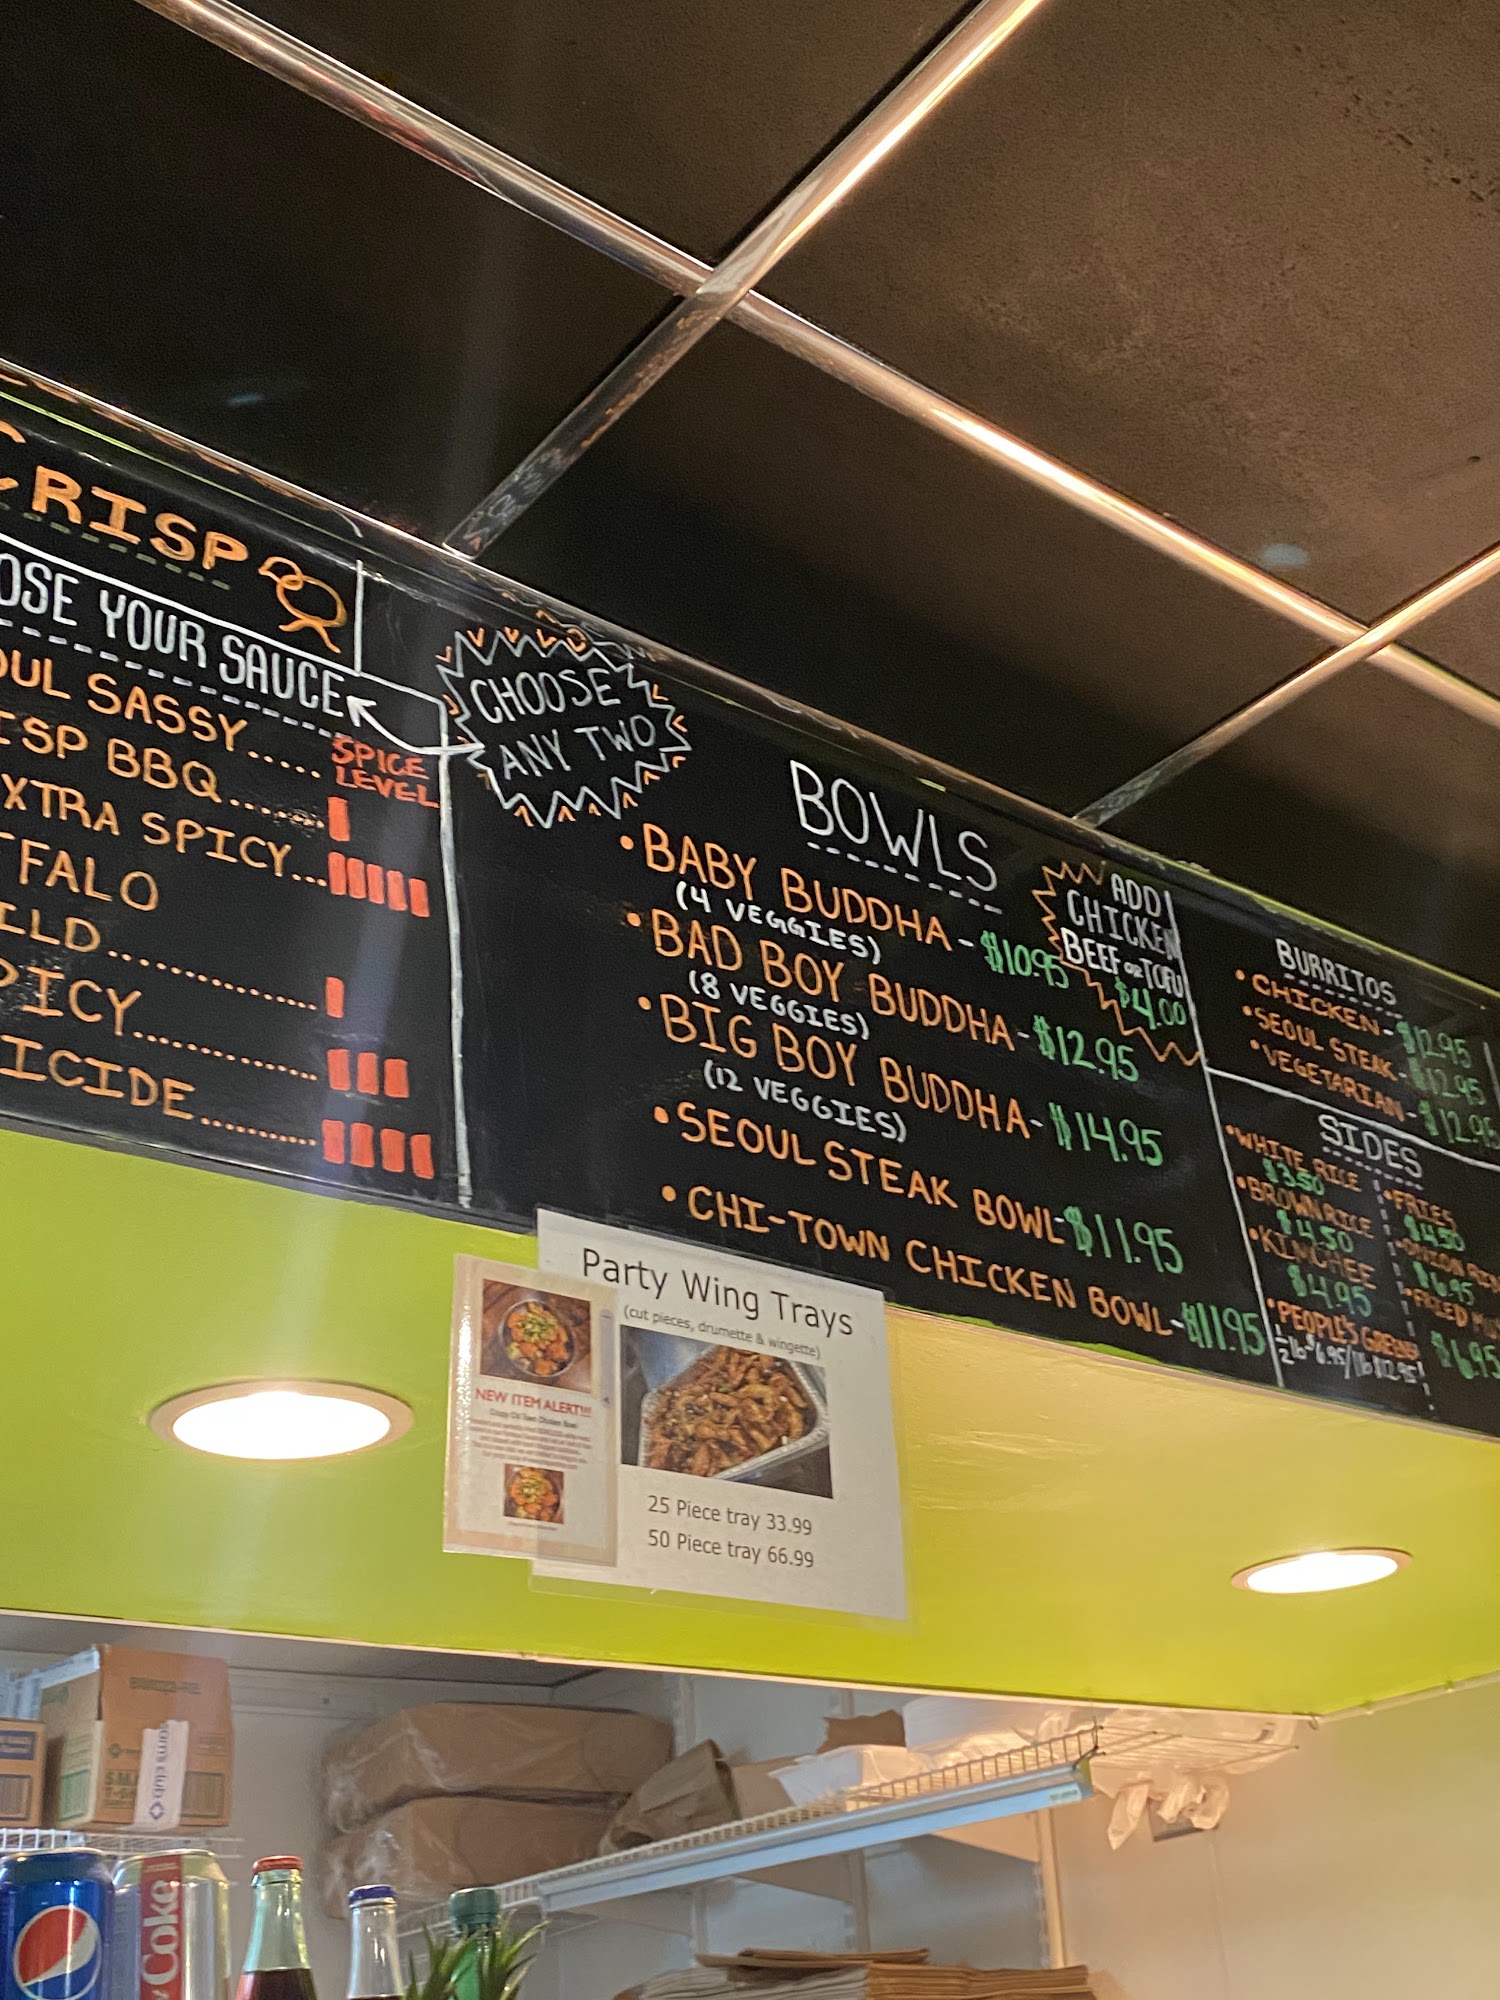 CRISP
OSE YOUR SAUCE
OUL SASSY.....
ISP BBQ.......
XTRA SPICY...
FFALO
ILD..............
PICY.............
ICIDE..........
SPICE
LEVEL
CHOOSE
ANY TWO
BOWLS
• BABY BUDDHA - $10.95
(4 VEGGIES)
• BAD BOY BUDDHA - $12.95
(8 VEGGIES)
• BIG BOY BUDDHA - $14.95
(12 VEGGIES)
• SEOUL STEAK BOWL - $11.95
• CHI-TOWN CHICKEN BOWL - $11.95
ADD
CHICKEN
BEEF or TOFU
$4.00
BURRITOS
• CHICKEN - $12.95
• SEOUL STEAK - $12.95
• VEGETARIAN - $12.95
SIDES
• WHITE RICE
$3.50
• BROWN RICE
$4.50
• KIMCHEE
$4.95
• PEOPLE'S GREENS
1/2 lb $6.95/1lb $12.95
• FRIES
$4.50
• ONION RIN
$6.95
• FRIED MUS
$6.95
Party Wing Trays
(cut pieces, drumette & wingette)
25 Piece tray 33.99
50 Piece tray 66.99
NEW ITEM ALERT!!!
Crispy Chi Town Chicken Bowl
sams club
Coke